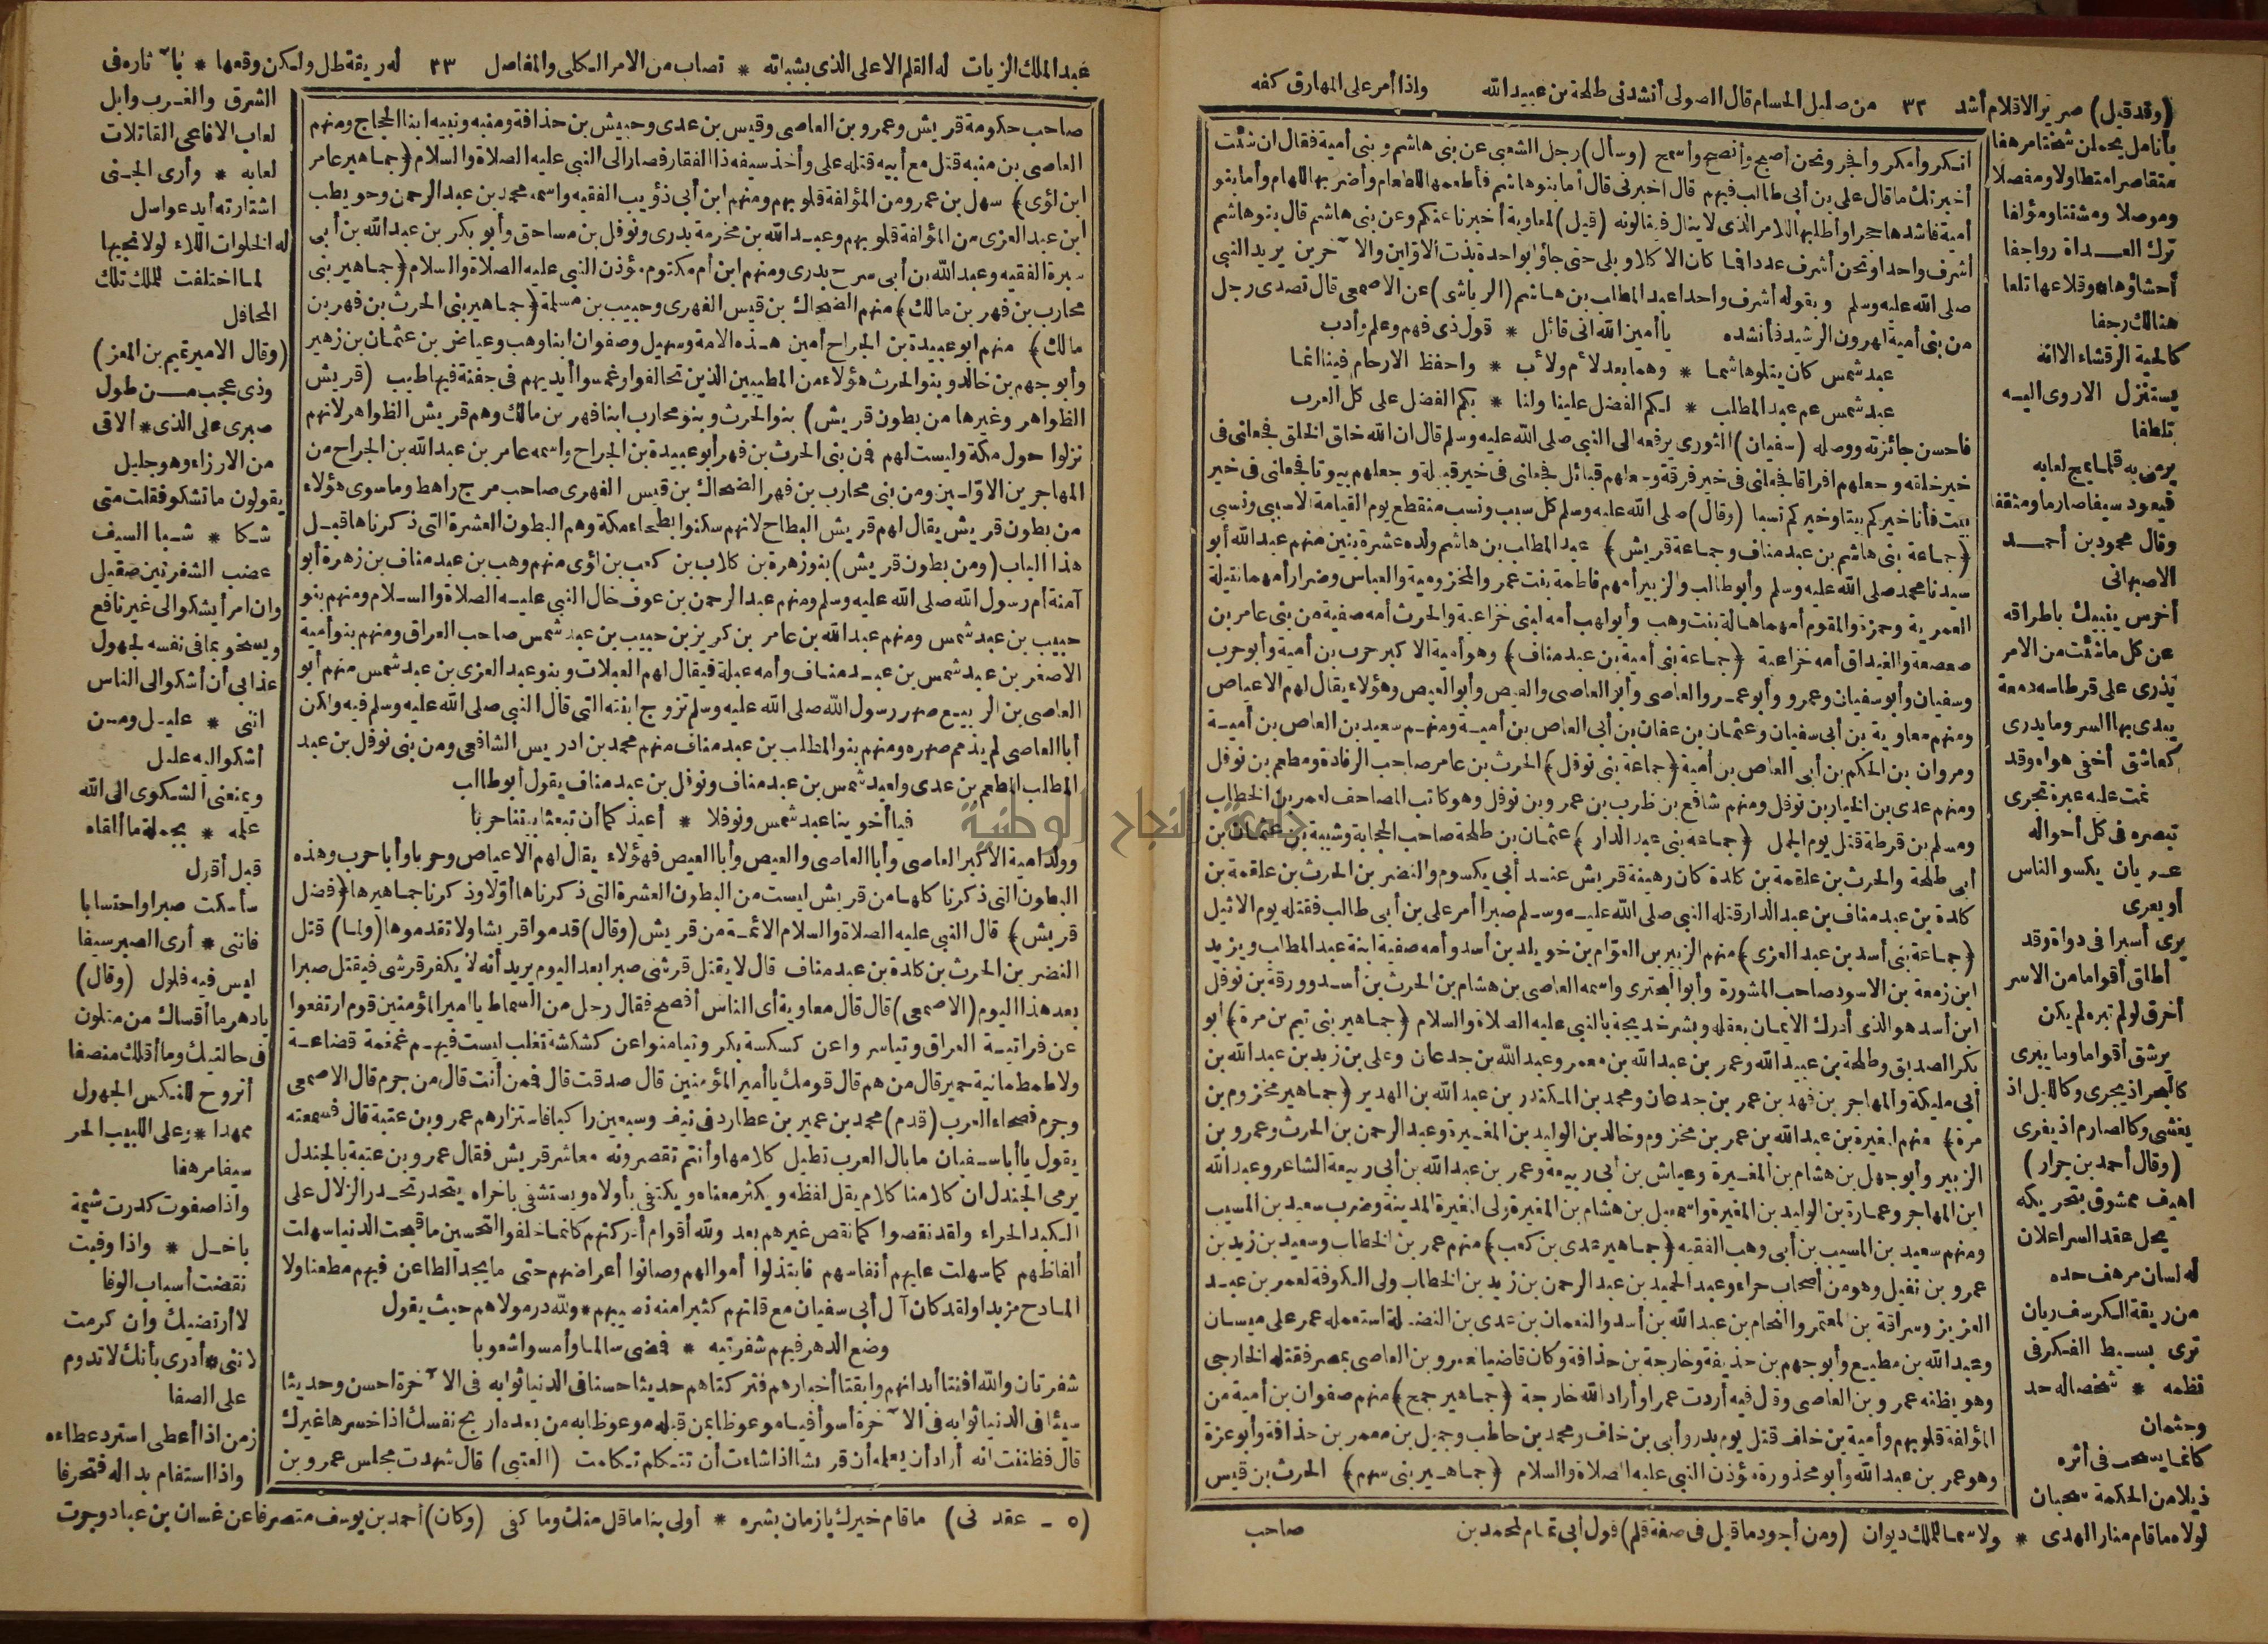 (وقد قيل) صرير الاقلام أشد ٣٢ من صليل الحسام قال الصولى أنشدنى طلحة بن عبيد الله واذا أمر على المهارق كفه
بأنامل يحملن شختا مرهفا
متقاصرا متطاولا ومفصلا
وموصلا ومشتتا ومؤلفا
ترك العداة رواجفا
أحشاؤها وقلاعها تلعا
هنالك رجفا
كالحية الرقشاء الا انه
يستنزل الاروى اليه
تلطفا
يرمى به قلما يمج لعابه
فيعود سيفا صارما ومثقفا
وقال محمود بن أحمد
الاصبهانى
أخرس ينبيك باطراقه
عن كل ما شئت من الامر
يذرى على قرطاسه دمعة
يبدى بها السر وما يدرى
كعاشق أخفى هواه وقد
نمت عليه عبرة تجرى
تبصره فى كل أحواله
عريان يكسو الناس
أو يعرى
يرى أسيرا فى دواة وقد
أطلق أقواما من الاسر
أخرق لو لم تبره لم يكن
يرشق أقواما وما يبرى
كالبحر اذ يجرى وكالليل اذ
يغشى وكالصارم اذ يفرى
(وقال أحمد بن جرار)
اهيف ممشوق بتحريكه
يحل عقد السر اعلان
له لسان مرهف حده
من ريقة الكرسف ريان
ترى بسيط الفكر فى
نظمه * شخصا له حد
وجثمان
كأنما يسحب فى أثره
ذيلا من الحكمة سحبان
لولاه ما قام منار الهدى * ولا سما للملك ديوان (ومن أجود ما قيل فى صفة قلم) قول أبى تمام لمحمد بن صاحب
أنكر وأمكر وأفجر ونحن أصبح وأنصح وأسمح (وسأل) رجل الشعبى عن بنى هاشم وبنى أمية فقال ان شئت
أخبرتك ما قال على بن أبى طالب فيهم قال اخبرنى قال أما بنو هاشم فأطعمها للطعام وأضربها للهام وأما بنو
أمية فأشدها حجرا وأطلبها للامر الذى لا ينال فينالونه (قيل) لمعاوية أخبرنا عنكم وعن بنى هاشم قال بنو هاشم
أشرف واحدا ونحن أشرف عددا فما كان الا كلا وبلى حتى جاؤا بواحدة بذت الاولين والآخرين يريد النبى
صلى الله عليه وسلم وبقوله أشرف واحدا عبد المطلب بن هاشم (الرياشى) عن الاصمعى قال تصدى رجل
من بنى أمية لهرون الرشيد فأنشده يا أمين الله انى قائل * قول ذى فهم وعلم وأدب
عبد شمس كان يتلو هاشما * وهما بعد لأم ولأب * واحفظ الارحام فينا انما
عبد شمس عم عبد المطلب * لكم الفضل علينا ولنا * بكم الفضل على كل العرب
فاحسن جائزته ووصله (سفيان) الثورى يرفعه الى النبى صلى الله عليه وسلم قال ان الله خلق الخلق فجعلنى فى
خير خلقه وجعلهم افراقا فجعلنى فى خير فرقة وجعلهم قبائل فجعلنى فى خير قبيلة وجعلهم بيوتا فجعلنى فى خير
بيت فأنا خيركم بيتا وخيركم نسبا (وقال) صلى الله عليه وسلم كل سبب ونسب منقطع يوم القيامة الا سببى ونسبى
(جماعة بنى هاشم بن عبد مناف وجماعة قريش) عبد المطلب بن هاشم ولده عشرة بنين منهم عبد الله أبو
سيدنا محمد صلى الله عليه وسلم وأبو طالب والزبير أمهم فاطمة بنت عمرو المخزومية والعباس وضرار أمهما نتيلة
العمرية وحمزة والمقوم أمهما هالة بنت وهب وأبو لهب أمه لبنى خزاعية والحرث أمه صفية من بنى عامر بن
صعصعة والغيداق أمه خزاعية (جماعة بنى أمية بن عبد مناف) وهو أمية الاكبر حرب بن أمية وأبو حرب
وسفيان وأبو سفيان وعمرو وأبو عمرو والعاصى وأبو العاصى والعيص وأبو العيص وهؤلاء يقال لهم الاعياص
ومنهم معاوية بن أبى سفيان وعثمان بن عفان بن أبى العاص بن أمية ومنهم سعيد بن العاص بن أمية
ومروان بن الحكم بن أبى العاص بن أمية (جماعة بنى نوفل) الحرث بن عامر صاحب الرفادة ومطعم بن نوفل
ومنهم عدى بن الخيار بن نوفل ومنهم شافع بن ظرب بن عمرو بن نوفل وهو كاتب المصاحف لعمر بن الخطاب
ومسلم بن قرظة قتل يوم الجمل (جماعة بنى عبد الدار) عثمان بن طلحة صاحب الحجابة وشيبة بن عثمان بن
أبى طلحة والحرث بن علقمة بن كلدة كان رهينة قريش عند أبى يكسوم والنضر بن الحرث بن علقمة بن
كلدة بن عبد مناف بن عبد الدار قتله النبى صلى الله عليه وسلم صبرا أمر على بن أبى طالب فقتله يوم الاثيل
(جماعة بنى أسد بن عبد العزى) منهم الزبير بن العوام بن خويلد بن أسد وأمه صفية ابنة عبد المطلب ويزيد
ابن زمعة بن الاسود صاحب المشورة وأبو البخترى واسمه العاصى بن هشام بن الحرث بن أسد وورقة بن نوفل
ابن أسد هو الذى أدرك الايمان بعقله وبشر خديجة بالنبى عليه الصلاة والسلام (جماهير بنى تيم بن مرة) ابو
بكر الصديق وطلحة بن عبيد الله وعمر بن عبد الله بن معمر وعبد الله بن جدعان وعلى بن زيد بن عبد الله بن
أبى مليكة والمهاجر بن فهد بن عمر بن جدعان ومحمد بن المنكدر بن عبد الله بن الهدير (جماهير مخزوم بن
مرة) منهم المغيرة بن عبد الله بن عمر بن مخزوم وخالد بن الوليد بن المغيرة وعبد الرحمن بن الحرث وعمرو بن
الزبير وأبو جهل بن هشام بن المغيرة وعياش بن أبى ربيعة وعمر بن عبد الله بن أبى ربيعة الشاعر وعبد الله
ابن المهاجر وعمارة بن الوليد بن المغيرة واسمعيل بن هشام بن المغيرة ولى المغيرة المدينة وضرب سعيد بن المسيب
ومنهم سعيد بن المسيب بن أبى وهب الفقيه (جماهير عدى بن كعب) منهم عمر بن الخطاب وسعيد بن زيد بن
عمرو بن نفيل وهو من أصحاب حراء وعبد الحميد بن عبد الرحمن بن زيد بن الخطاب ولى الكوفة لعمر بن عبد
العزيز وسراقة بن المعتمر والنحام بن عبد الله بن أسد والنعمان بن عدى بن النضلة استعمله عمر على ميسان
وعبد الله بن مطيع وأبو جهم بن حذيفة وخارجة بن حذافة وكان قاضيا لعمرو بن العاصى بمصر فقتله الخارجى
وهو يظنه عمرو بن العاصى وقال فيه أردت عمرا وأراد الله خارجة (جماهير جمح) منهم صفوان بن أمية من
المؤلفة قلوبهم وأمية بن خلف قتل يوم بدر وأبى بن خلف ومحمد بن حاطب وجميل بن معمر بن حذافة وأبو عزة
وهو عمر بن عبد الله وأبو محذورة مؤذن النبى عليه الصلاة والسلام (جماهير بنى سهم) الحرث بن قيس
عبد الملك الزيات له القلم الاعلى الذى بشباته * تصاب من الامر الكلى والمفاصل ٣٣ له ريقة طل ولكن وقعها * بآثاره فى
صاحب حكومة قريش وعمرو بن العاصى وقيس بن عدى وحبيش بن حذافة ومنبه ونبيه ابنا الحجاج ومنهم
العاصى بن منبه قتل مع أبيه قتله على وأخذ سيفه ذا الفقار فصار الى النبى عليه الصلاة والسلام (جماهير عامر
ابن لؤى) سهل بن عمرو من المؤلفة قلوبهم ومنهم ابن أبى ذؤيب الفقيه واسمه محمد بن عبد الرحمن وحويطب
ابن عبد العزى من المؤلفة قلوبهم وعبد الله بن مخرمة بدرى ونوفل بن مساحق وأبو بكر بن عبد الله بن أبى
سبرة الفقيه وعبد الله بن أبى سرح بدرى ومنهم ابن أم مكتوم مؤذن النبى عليه الصلاة والسلام (جماهير بنى
محارب بن فهر بن مالك) منهم الضحاك بن قيس الفهرى وحبيب بن مسلمة (جماهير بنى الحرث بن فهر بن
مالك) منهم ابو عبيدة بن الجراح أمين هذه الامة وسهيل وصفوان ابنا وهب وعياض بن عثمان بن زهير
وأبو جهم بن خالد وبنو الحرث هؤلاء من المطيبين الذين تحالفوا وغمسوا أيديهم فى جفنة فيها طيب (قريش
الظواهر وغيرها من بطون قريش) بنو الحرث وبنو محارب ابنا فهر بن مالك وهم قريش الظواهر لانهم
نزلوا حول مكة وليست لهم فمن بنى الحرث بن فهر أبو عبيدة بن الجراح واسمه عامر بن عبد الله بن الجراح من
المهاجرين الاولين ومن بنى محارب بن فهر الضحاك بن قيس الفهرى صاحب مرج راهط وما سوى هؤلاء
من بطون قريش يقال لهم قريش البطاح لانهم سكنوا بطحاء مكة وهم البطون العشرة التى ذكرناها قبل
هذا الباب (ومن بطون قريش) بنو زهرة بن كلاب بن كعب بن لؤى منهم وهب بن عبد مناف بن زهرة أبو
آمنة أم رسول الله صلى الله عليه وسلم ومنهم عبد الرحمن بن عوف خال النبى عليه الصلاة والسلام ومنهم بنو
حبيب بن عبد شمس ومنهم عبد الله بن عامر بن كريز بن حبيب بن عبد شمس صاحب العراق ومنهم بنو أمية
الاصغر بن عبد شمس بن عبد مناف وأمه عبلة فيقال لهم العبلات وبنو عبد العزى بن عبد شمس منهم أبو
العاصى بن الربيع صهر رسول الله صلى الله عليه وسلم تزوج ابنته التى قال النبى صلى الله عليه وسلم فيه ولكن
أبا العاصى لم يذمم صهره ومنهم بنو المطلب بن عبد مناف منهم محمد بن ادريس الشافعى ومن بنى نوفل بن عبد
المطلب المطعم بن عدى ولعبد شمس بن عبد مناف ونوفل بن عبد مناف يقول أبو طالب
فيا أخوينا عبد شمس ونوفلا * أعيذ كما أن تبعثا بيننا حربا
وولد امية الاكبر العاصى وأبا العاصى والعيص وأبا العيص فهؤلاء يقال لهم الاعياص وحربا وأبا حرب وهذه
البطون التى ذكرنا كلها من قريش ليست من البطون العشرة التى ذكرناها أولا وذكرنا جماهيرها (فضل
قريش) قال النبى عليه الصلاة والسلام الائمة من قريش (وقال) قدموا قريشا ولا تقدموها (ولما) قتل
النضر بن الحرث بن كلدة بن عبد مناف قال لا يقتل قرشى صبرا بعد اليوم يريد أنه لا يكفر قرشى فيقتل صبرا
بعد هذا اليوم (الاصمعى) قال قال معاوية أى الناس أفصح فقال رجل من السماط يا امير المؤمنين قوم ارتفعوا
عن فراتية العراق وتياسروا عن كسكسة بكر وتيامنوا عن كشكشة تغلب ليست فيهم غمغمة قضاعة
ولا طمطمانية حمير قال من هم قال قومك يا أمير المؤمنين قال صدقت قال فمن أنت قال من جرم قال الاصمعى
وجرم فصحاء العرب (قدم) محمد بن عمير بن عطارد فى نيف وسبعين راكبا فاستزارهم عمرو بن عتبة قال فسمعته
يقول يا أبا سفيان ما بال العرب تطيل كلامها وأنتم تقصرونه معاشر قريش فقال عمرو بن عتبة بالجندل
يرمى الجندل ان كلامنا كلام يقل لفظه ويكثر معناه ويكتفى بأولاه ويستشفى باخراه يتحدر تحدر الزلال على
الكبد الحراء ولقد نقصوا كما نقص غيرهم بعد ولله أقوام أدركتهم كأنما خلقوا لتحسين ما قبحت الدنيا سهلت
ألفاظهم كما سهلت عليهم أنفاسهم فابتذلوا أموالهم وصانوا أعراضهم حتى ما يجد الطاعن فيهم مطعنا ولا
المادح مزيدا ولقد كان آل أبى سفيان مع قلتهم كثيرا منه نصيبهم * ولله در مولاهم حيث يقول
وضع الدهر فيهم شفرتيه * فمضى سالما وأمسوا شعوبا
شفرتان والله افنتا أبدانهم وابقتا أخبارهم فتركتاهم حديثا حسنا فى الدنيا ثوابه فى الآخرة احسن وحديثا
سيئا فى الدنيا ثوابه فى الآخرة أسوأ فيا موعوظا بمن قبله موعوظا به من بعده اربح نفسك اذا خسرها غيرك
قال فظننت انه أراد أن يعلمه أن قريشا اذا شاءت أن تتكلم تكلمت (العتبى) قال شهدت مجلس عمرو بن
الشرق والغرب وابل
لعاب الافاعى القاتلات
لعابه * وأرى الجنى
اشتارته أيد عواسل
له الخلوات اللاء لولا نجيها
لما اختلفت للملك تلك
المحافل
(وقال الامير تميم بن المعز)
وذى عجب من طول
صبرى على الذى * ألاقى
من الارزاء وهو جليل
يقولون ما تشكو فقلت متى
شكا * شبا السيف
عضب الشفرتين صقيل
وان امرأ يشكو الى غير نافع
ويسخو بما فى نفسه لجهول
عذابى أن أشكو الى الناس
اننى * عليل ومن
أشكو اليه عليل
ويمنعنى الشكوى الى الله
علمه * بجملة ما ألقاه
قبل أقول
سأسكت صبرا واحتسابا
فاننى * أرى الصبر سيفا
ليس فيه فلول (وقال)
يا دهر ما أقساك من متلون
فى حالتيك وما أقلك منصفا
أتروح للنكس الجهول
ممهدا * وعلى اللبيب الحر
سيفا مرهفا
واذا صفوت كدرت شيمة
باخل * واذا وفيت
نقضت أسباب الوفا
لا أرتضيك وان كرمت
لاننى * أدرى بأنك لا تدوم
على الصفا
زمن اذا أعطى استرد عطاءه
واذا استقام بدا له فتحرفا
(٥ - عقد نى) ما قام خيرك يا زمان بشره * أولى بنا ما قل منك وما كفى (وكان) أحمد بن يوسف متصرفا عن غسان بن عباد وجرت
جامعة النجاح الوطنية